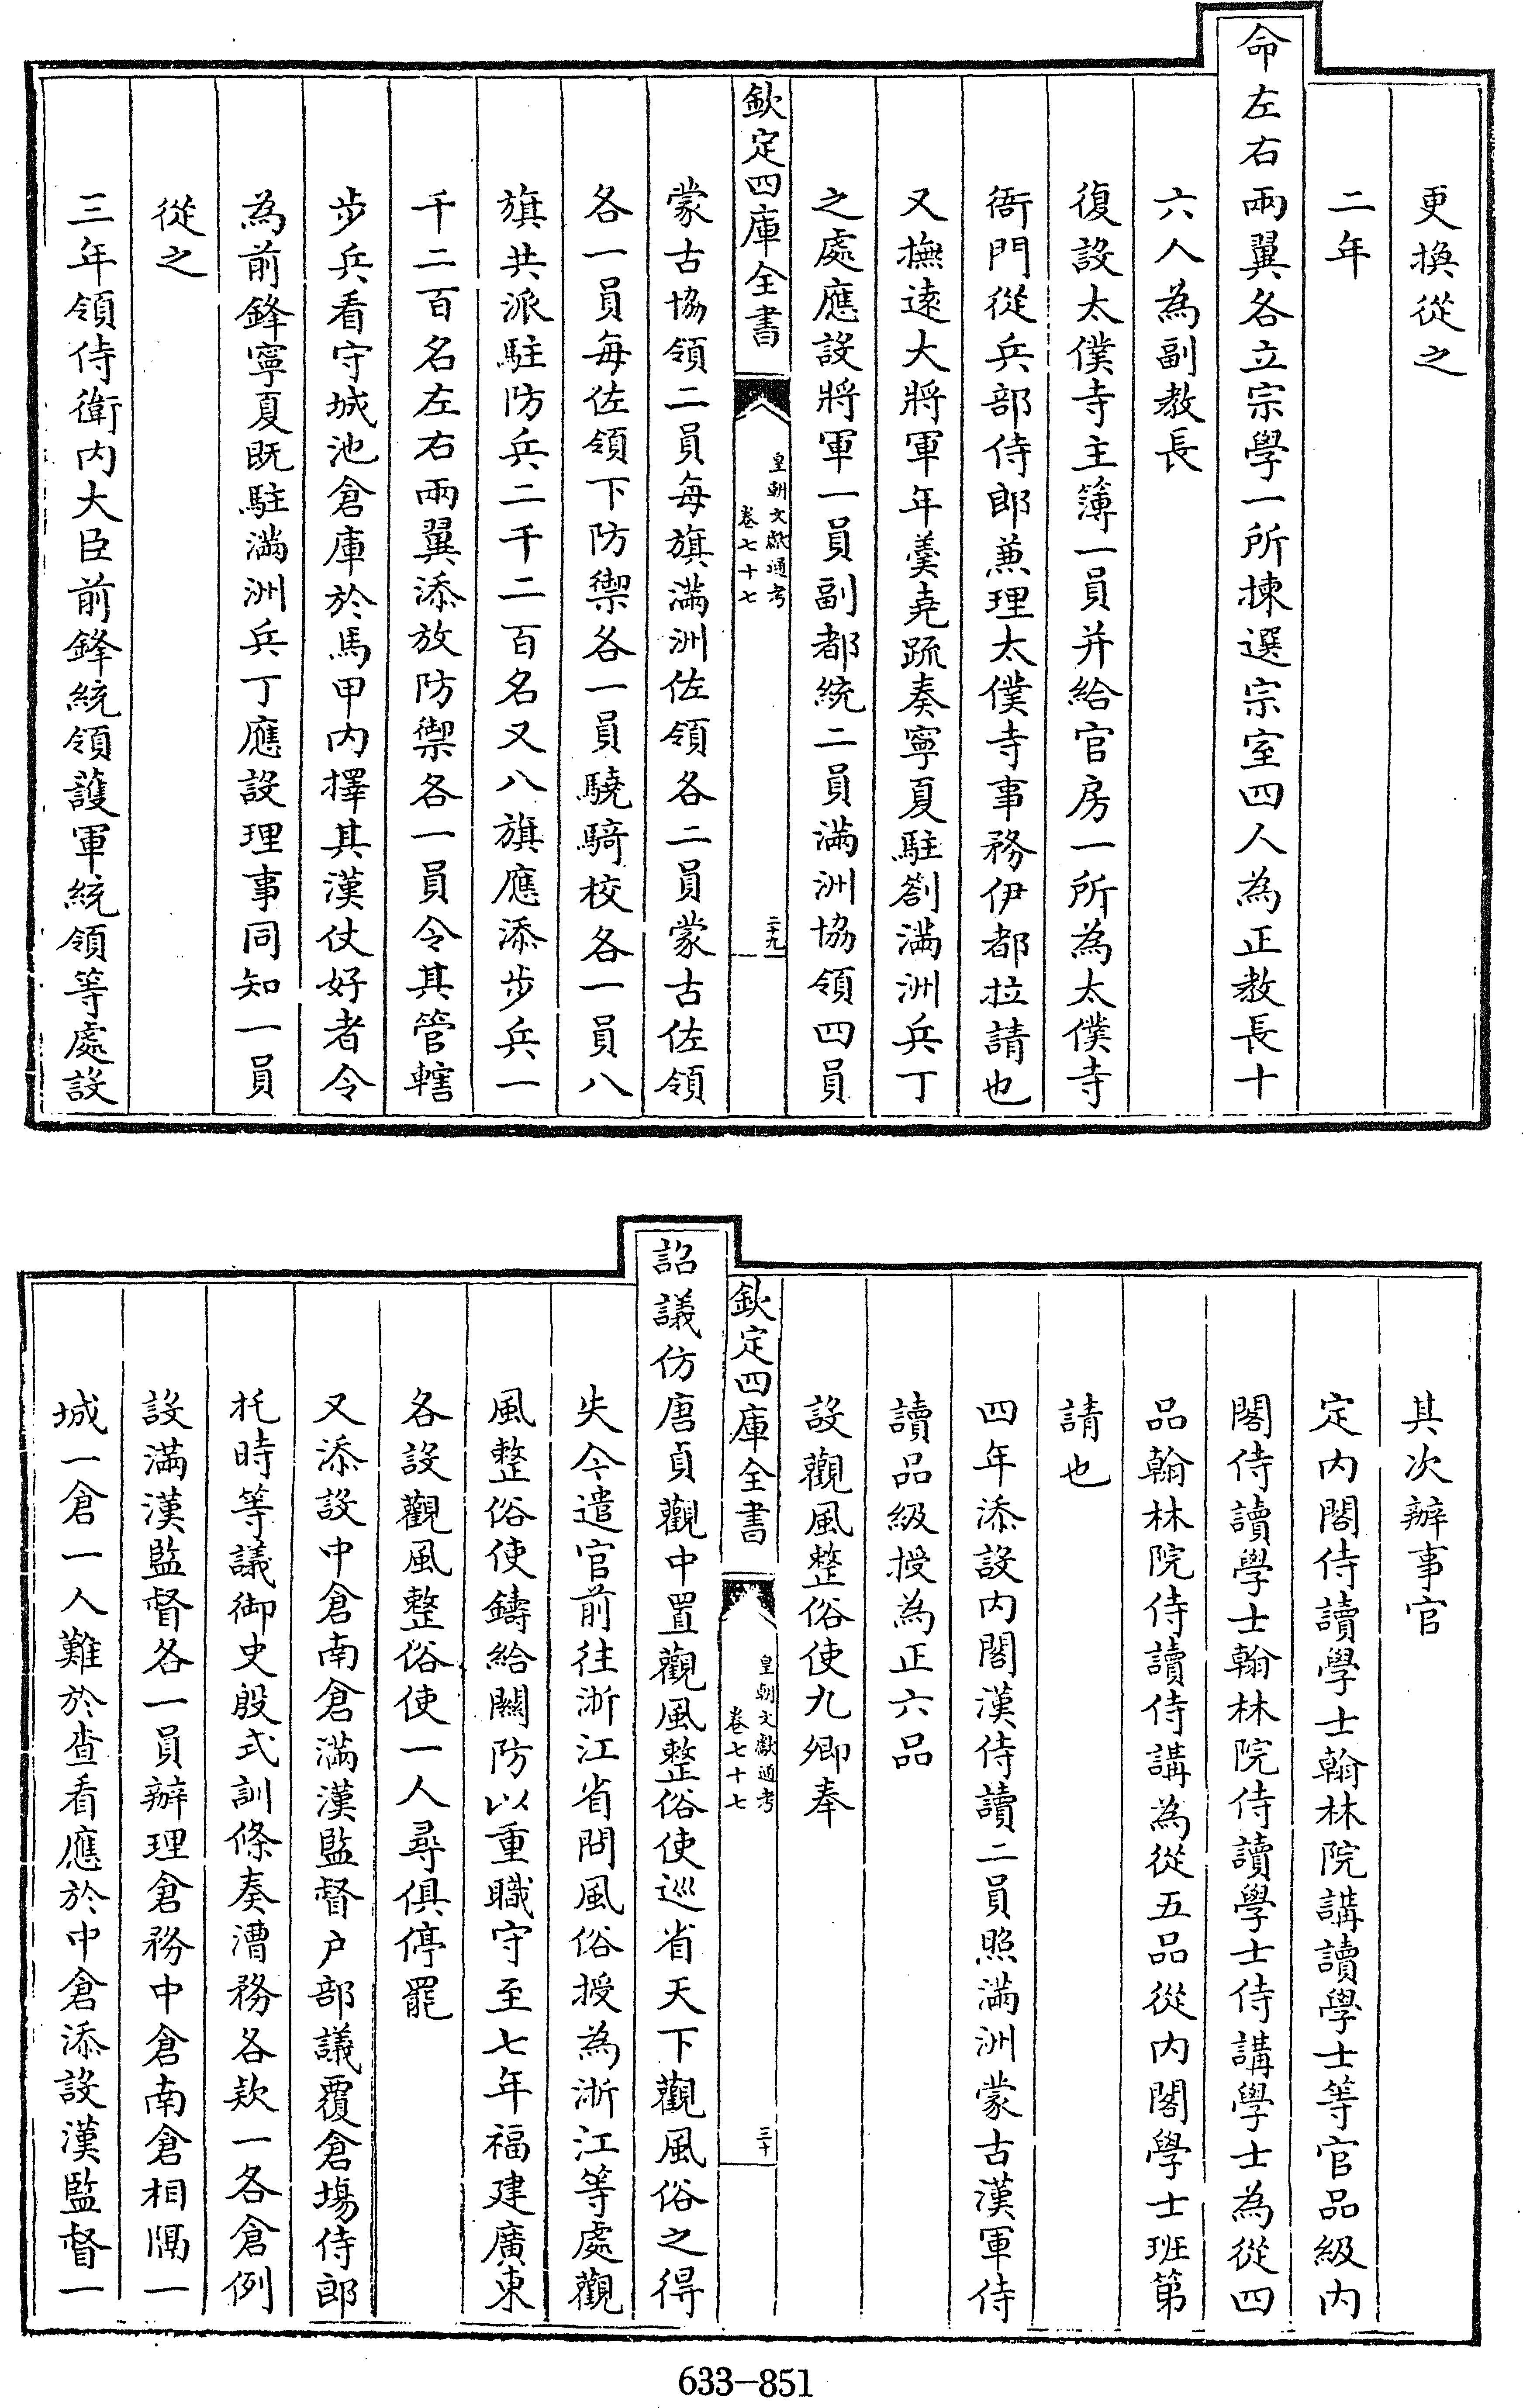 更換從之
二年
命左右兩翼各立宗學一所揀選宗室四人為正教長十
六人為副教長
復設太僕寺主簿一員并給官房一所為太僕寺
衙門從兵部侍郎兼理太僕寺事務伊都拉請也
又撫遠大將軍年羹堯疏奏寧夏駐劄滿洲兵丁
之處應設將軍一員副都統二員滿洲協領四員
欽定四庫全書
皇朝文獻通考
卷七十七
二十九
蒙古協領二員每旗滿洲佐領各二員蒙古佐領
各一員每佐領下防禦各一員驍騎校各一員八
旗共派駐防兵二千二百名又八旗應添步兵一
千二百名左右兩翼添放防禦各一員令其管轄
步兵看守城池倉庫於馬甲內擇其漢仗好者令
為前鋒寧夏既駐滿洲兵丁應設理事同知一員
從之
三年領侍衛內大臣前鋒統領護軍統領等處設
其次辦事官
定內閣侍讀學士翰林院講讀學士等官品級內
閣侍讀學士翰林院侍讀學士侍講學士為從四
品翰林院侍讀侍講為從五品從內閣學士班第
請也
四年添設內閣漢侍讀二員照滿洲蒙古漢軍侍
讀品級授為正六品
設觀風整俗使九卿奉
欽定四庫全書
皇朝文獻通考
卷七十七
三十
詔議仿唐貞觀中置觀風整俗使巡省天下觀風俗之得
失今遣官前往浙江省問風俗授為浙江等處觀
風整俗使鑄給關防以重職守至七年福建廣東
各設觀風整俗使一人尋俱停罷
又添設中倉南倉滿漢監督戶部議覆倉場侍郎
托時等議御史殷式訓條奏漕務各款一各倉例
設滿漢監督各一員辦理倉務中倉南倉相隔一
城一倉一人難於查看應於中倉添設漢監督一
633-851